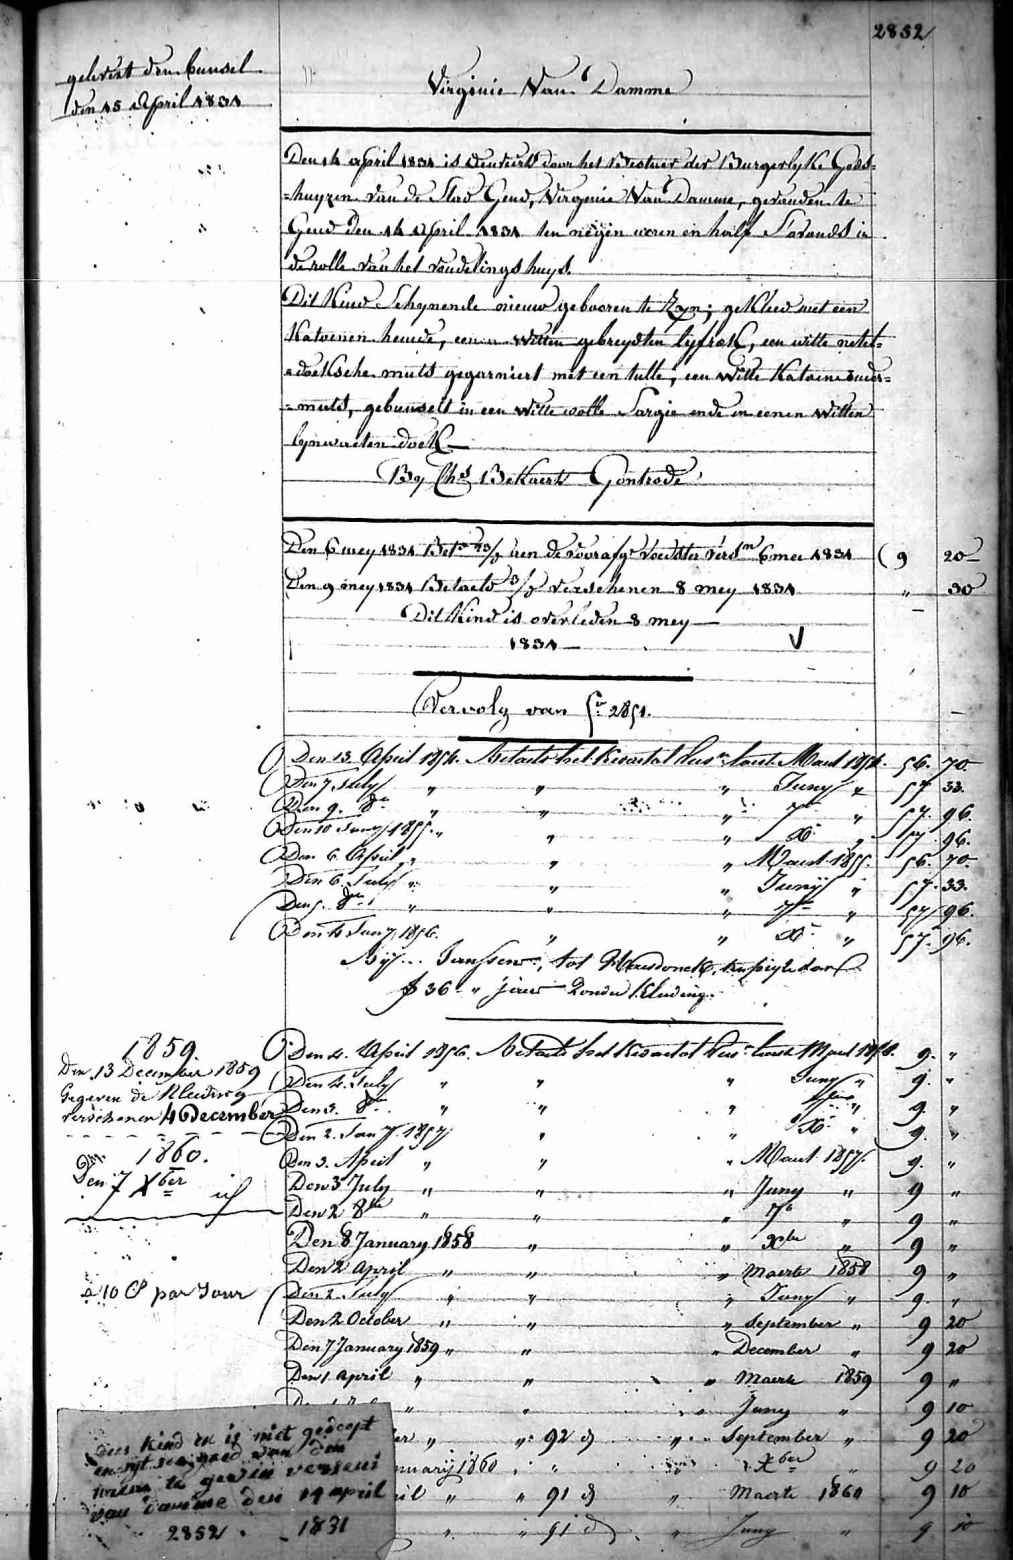 2852
gelivert den bunsel
den 15 April 1831
Virginie Van Damme
Den 14 April 1831 is door het Bestuur der Burgerlyke Gods=
=huyzen van de Stad Gend, Virginie Van Damme, gevonden te
Gend den 14 April 1831 ten negen uren en half S'avonds in
de rolle van het vondelingshuys.
Dit Kind Schynende nieuw gebooren te Zyn; gekleed met een
Katoenen hemde, eenen witten gebreydten lyfrok, een witte netel=
=doeksche muts gegarniert met een tulle, een Witte Katoene onder=
=muts, gebunselt in een Witte wolle Sargie ende in eenen Witten
lynwaeten doek
By Chs Bekaert Gontrode
Den 6 mey 1831 6 mei 1831 9 20
Den 9 mey 1831 Betaeld verschenen 8 mey 1831 " 30
Dit Kind is overleden 8 mey
1831
Vervolg van fo 2851.
Den 13. April 1854. Betaelt het Kwartal Maart 1854. 56. 70.
Den 7 July " " " Juny " 57 33.
Den 9. 8re " " " 7re " 57. 96.
Den 10 Jany 1855. " " " Xre " 57. 96.
Den 6 April " " " Maart 1855. 56. 70.
Den 6 July " " " Juny " 57. 33.
Den 5. 8re " " " 7re " 57 96.
Den Jany 1856. " " Xre " 57. 96.
Bij Janssens, tot
36 " jaer Zonder Kleeding.
1859.
Den 13 December 1859
Gegeven de Kleeding
verschenen 4 December
1860.
Den 7 Xber
à 10 Cs par Jour
Den 2. April 1856. Betaelt het Kwartal Maart 1856. 9. "
Den 4 July " " " Juny " 9. "
Den 3. 8re " " " 7re " 9. "
Den 2. Jany 1857. " " Xre " 9. "
Den 3. April " " " Maart 1857. 9. "
Den 3 July " " " Juny " 9 "
Den 2 8bre " " " 7re " 9 "
Den 8 January 1858 " " Xbre " 9 "
Den 2 April " " " Maerte 1858 9 "
Den 2. July " " " Juny " 9. "
Den 2 October " " " September " 9 20
Den 7 January 1859 " " " December " 9 20
Den 1 April " " " Maerte 1859 9 "
" " Juny " 9 10
" " 92 d " " September " 9 20
1860 " " Xber " 9 20
" " 91 d " Maerte 1860 9 10
" " 91 d " Juny " 9 10
dees kind en is niet gedoept
van damme den 14 april
2852. 1831